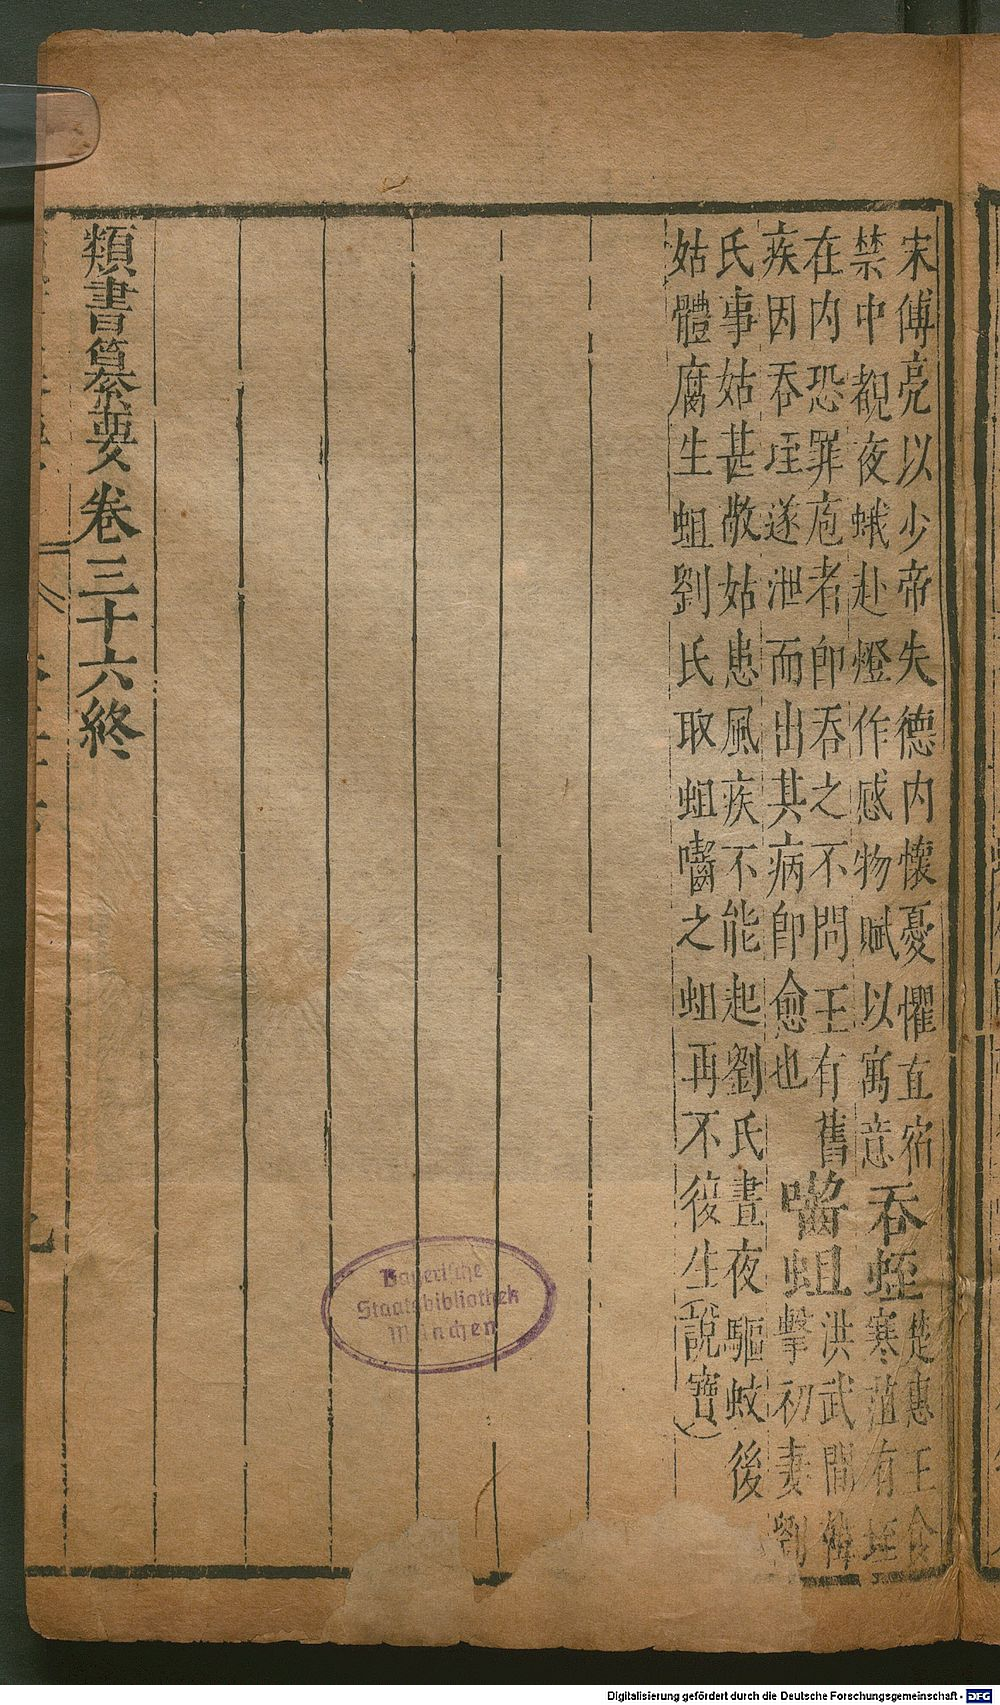 宋傅亮以少帝失德內懷憂懼直宿
禁中覩夜蛾赴燈作感物賦以寓意
吞蛭
楚惠王食
寒葅有蛭
在內恐罪庖者卽吞之不問王有舊
疾因吞蛭遂泄而出其病卽愈也
嚙蛆
洪武間韓
擊初妻劉
氏事姑甚敬姑患風疾不能起劉氏晝夜驅蚊後
姑體腐生蛆劉氏取蛆嚙之蛆再不復生(說寶)
類書纂要卷三十六終
Bayerische
Staatsbibliothek
München
Digitalisierung gefördert durch die Deutsche Forschungsgemeinschaft - DFG